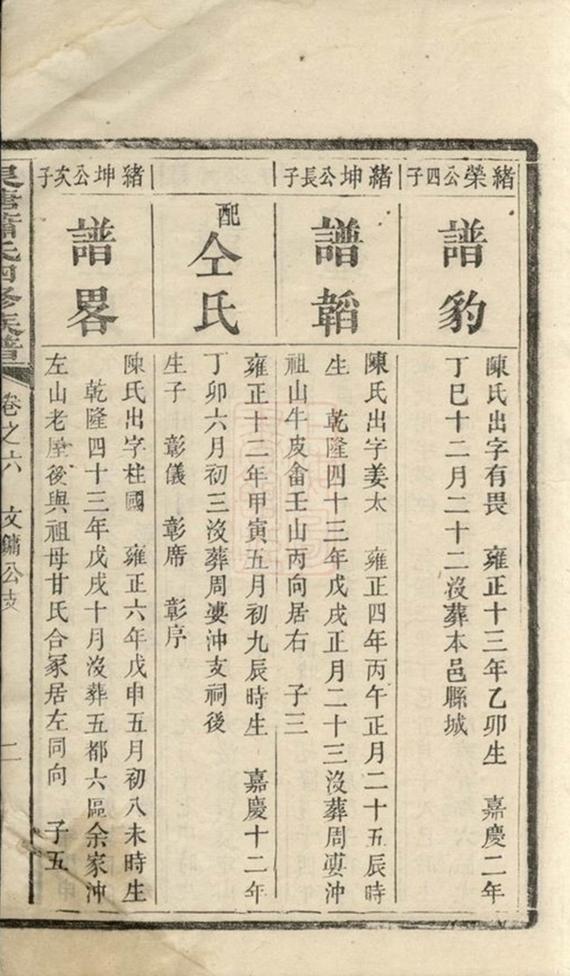 緒榮公四子
譜豹
陳氏出字有畏　雍正十三年乙卯生　嘉慶二年
丁巳十二月二十二沒葬本邑縣城
緒坤公長子
譜韜
陳氏出字姜太　雍正四年丙午正月二十五辰時
生　乾隆四十三年戊戌正月二十三沒葬周婆沖
祖山牛皮侖壬山丙向居右　子三
配
仝氏
雍正十二年甲寅五月初九辰時生　嘉慶十二年
丁卯六月初三沒葬周婆沖支祠後
生子　彰儀　彰席　彰序
緒坤公次子
譜畧
陳氏出字柱國　雍正六年戊申五月初八未時生
乾隆四十三年戊戌十月沒葬五都六區余家沖
左山老屋後與祖母甘氏合冢居左同向　子五
蕭氏四修族譜
卷之六　文鏞公支　二